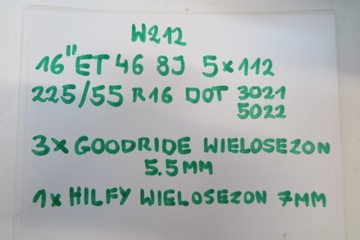 W212
16" ET 46 8J 5x112
225/55 R16 DOT 3021
5022
3x GOODRIDE WIELOSEZON
5.5MM
1x HILFY WIELOSEZON 7MM